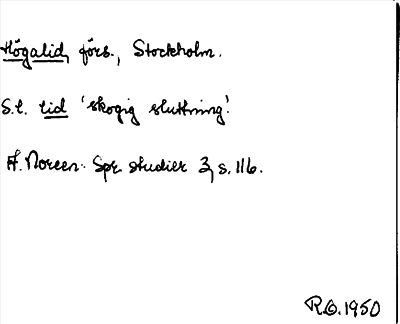 Högalid, förs., Stockholm.
S.l. lid 'skogig sluttning'.
A. Noreen Spr. studier 3, s. 116.
R.O. 1950